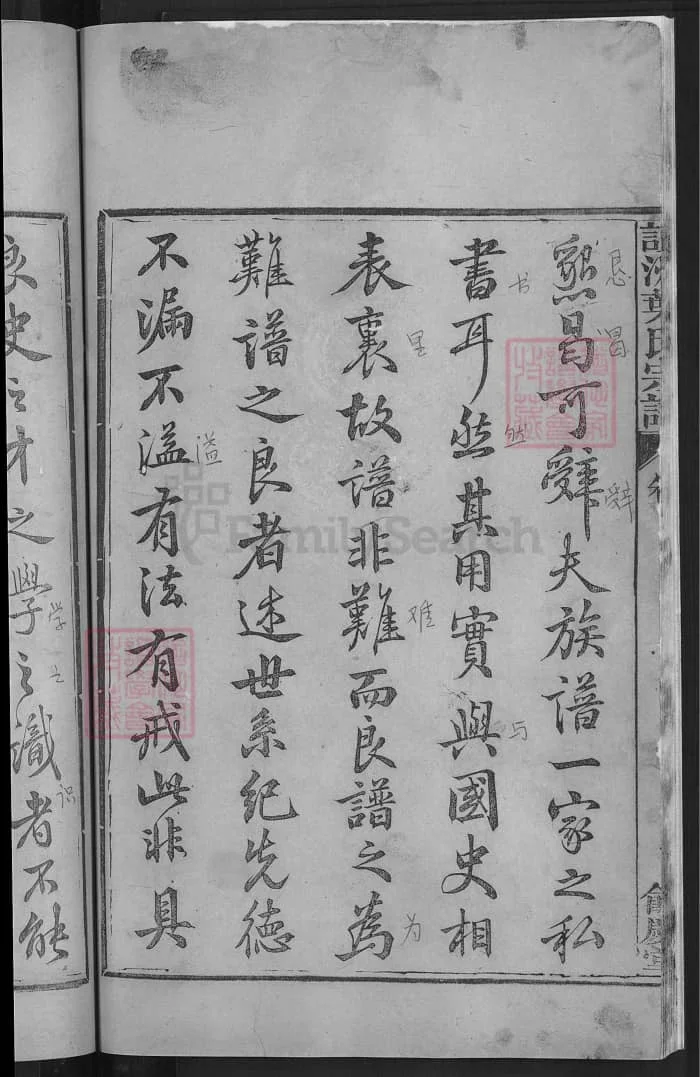 懇曷可辭夫族譜一家之私
書耳然其用實與國史相
表裏故譜非難而良譜之為
難譜之良者述世系紀先德
不漏不溢有法有戒此非具
良史之才之學之識者不能
恳
曷
辞
书
然
与
里
难
为
溢
学
之
识
葉氏宗譜
FamilySearch